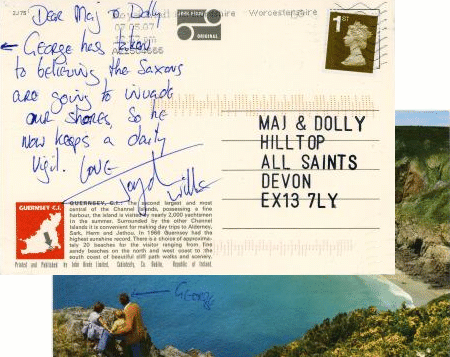 Dear Maj & Dolly
← George has taken
to believing the Saxons
are going to invade
our shores, so he
now keeps a daily
vigil. Love
2J75
Worcestershire
07.05.07
ORIGINAL
1ST
MAJ & DOLLY
HILLTOP
ALL SAINTS
DEVON
EX13 7LY
GUERNSEY C.I.
GUERNSEY, C.I. The second largest and most
central of the Channel Islands, possessing a fine
harbour, the island is visited by nearly 2,000 yachtsmen
in the summer. Surrounded by the other Channel
Islands it is convenient for making day trips to Alderney,
Sark, Herm and Jethou. In 1966 Guernsey had the
highest sunshine record. There is a choice of approxima-
tely 20 beaches for the visitor ranging from fine
sandy beaches on the north and west coast to the
south coast of beautiful cliff path walks and scenery.
Printed and Published by John Hinde Limited, Cabinteely, Co. Dublin, Republic of Ireland.
← George